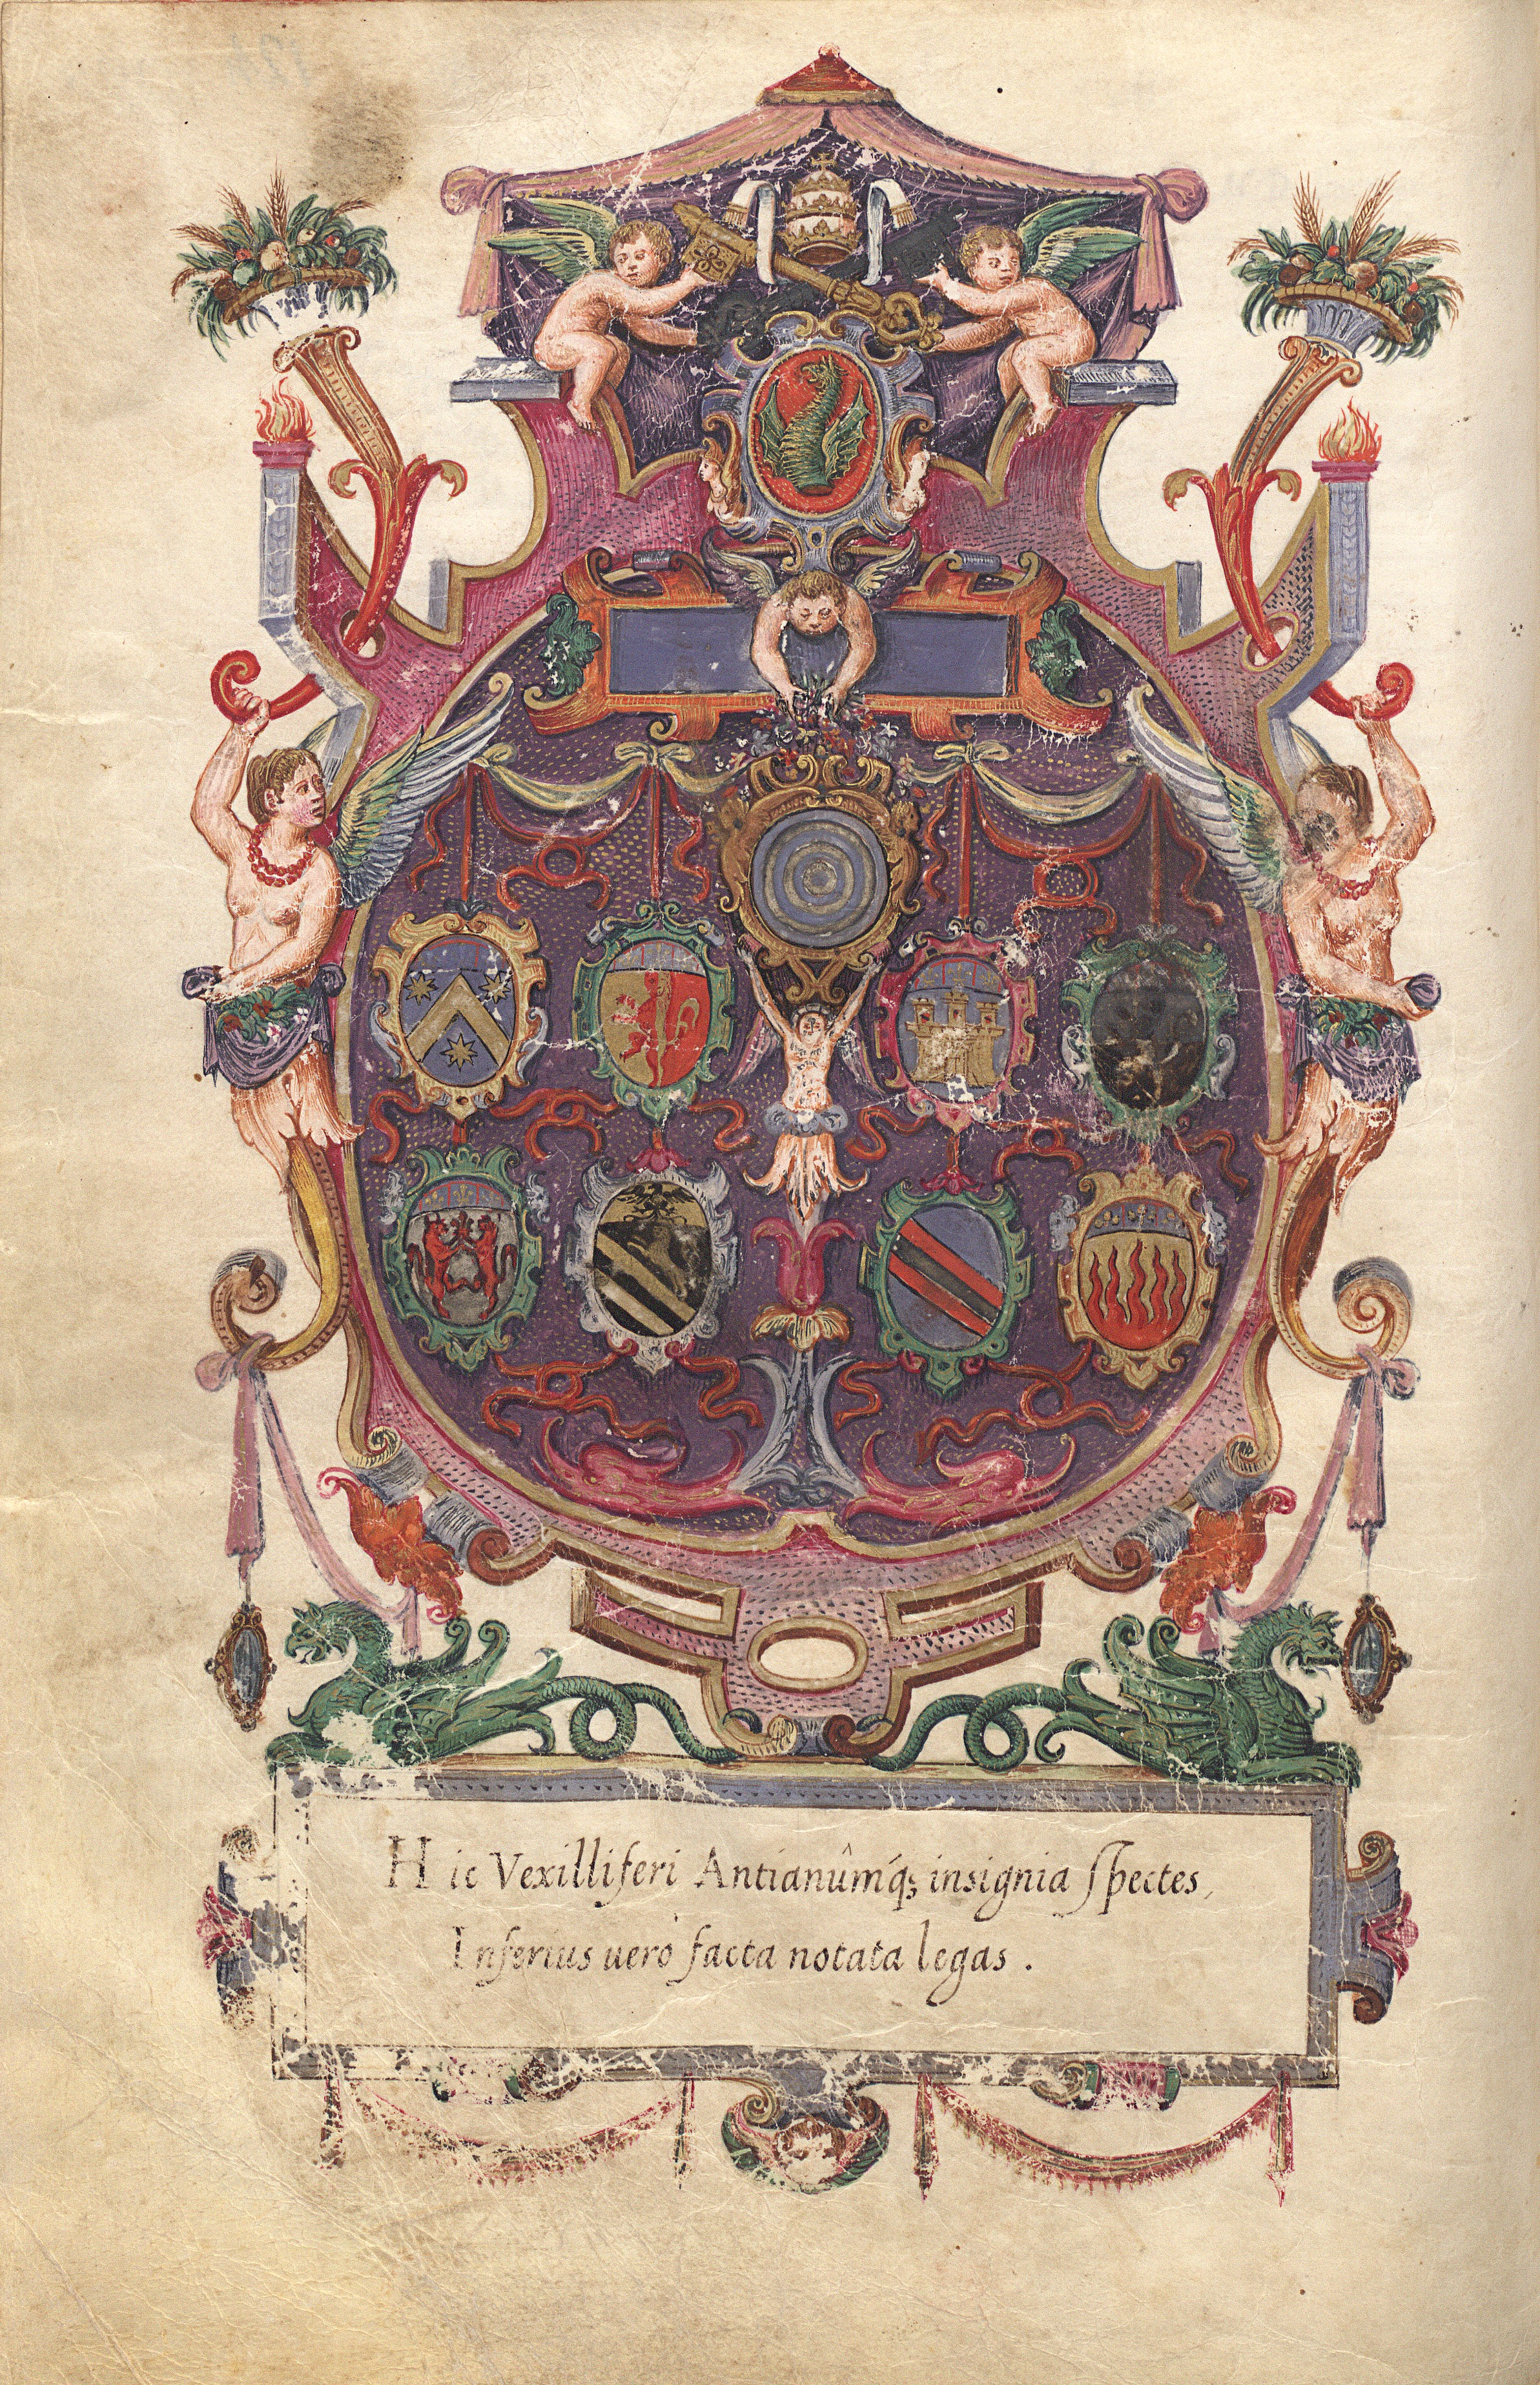 Hic Vexilliferi Antianûmq́ꝫ insignia spectes,
Inferius uerò facta notata legas .